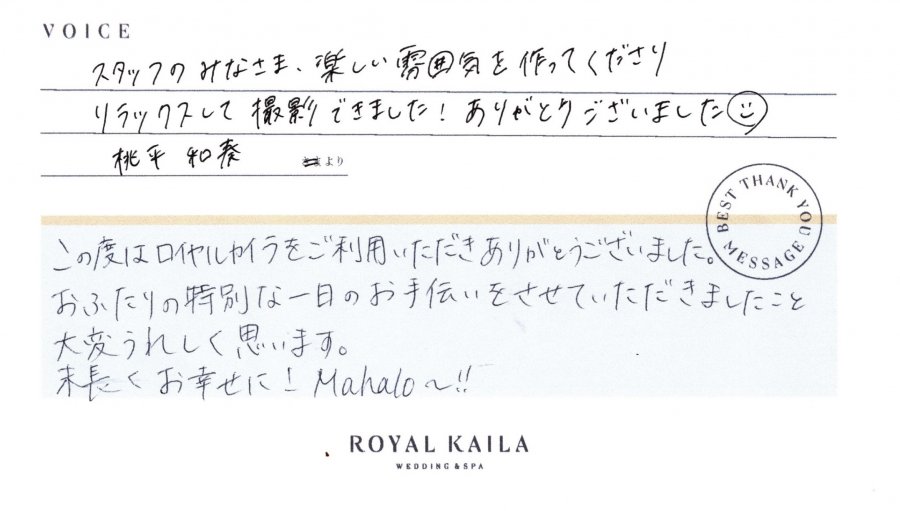 VOICE
スタッフのみなさま、楽しい雰囲気を作ってくださり
リラックスして撮影できました！ありがとうございました
桃平 和奏 より
BEST THANK YOU MESSAGE
この度はロイヤルカイラをご利用いただきありがとうございました。
おふたりの特別な一日のお手伝いをさせていただきましたこと
大変うれしく思います。
末長くお幸せに！Mahalo〜!!
ROYAL KAILA
WEDDING & SPA